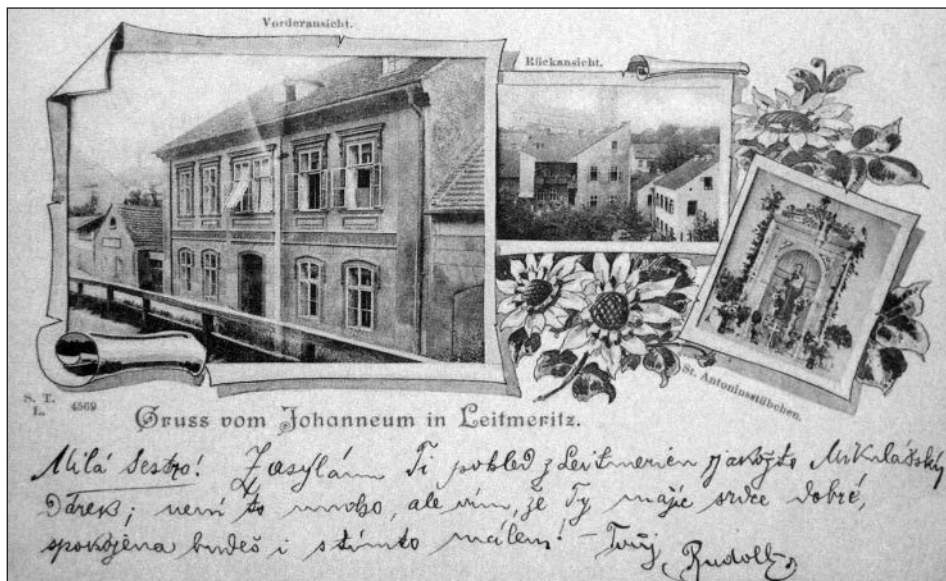 Vorderansicht.
Rückansicht.
St. Antoniusstübchen.
S. T.
L. 4569
Gruss vom Johanneum in Leitmeritz.
Milá Sestro! Zasylám Ti pohled z Leitmeritz jakožto Mikulášský
Dárek; není to mnoho, ale vím, že Ty majíc srdce dobré,
spokojena budeš i s tímto málem! – Tvůj Rudolf